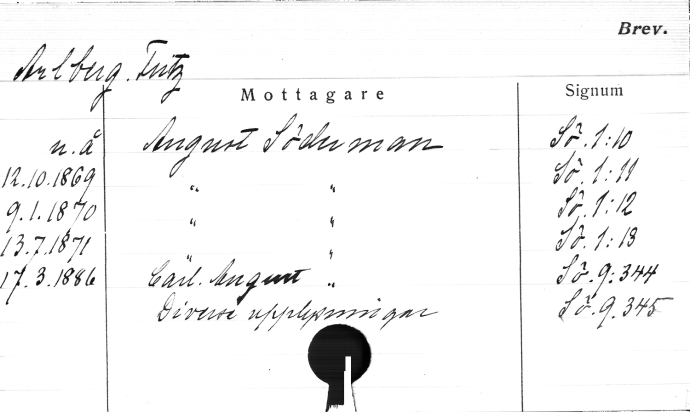 Brev.
Arlberg. Fritz
Mottagare Signum
u.å August Söderman Sö. 1:10
12.10.1869 " " Sö. 1:11
9.1.1870 " " Sö. 1:12
13.7.1871 " " Sö. 1:13
17.3.1886 Carl. August " Sö. 9:344
Diverse upplysningar Sö. 9.345